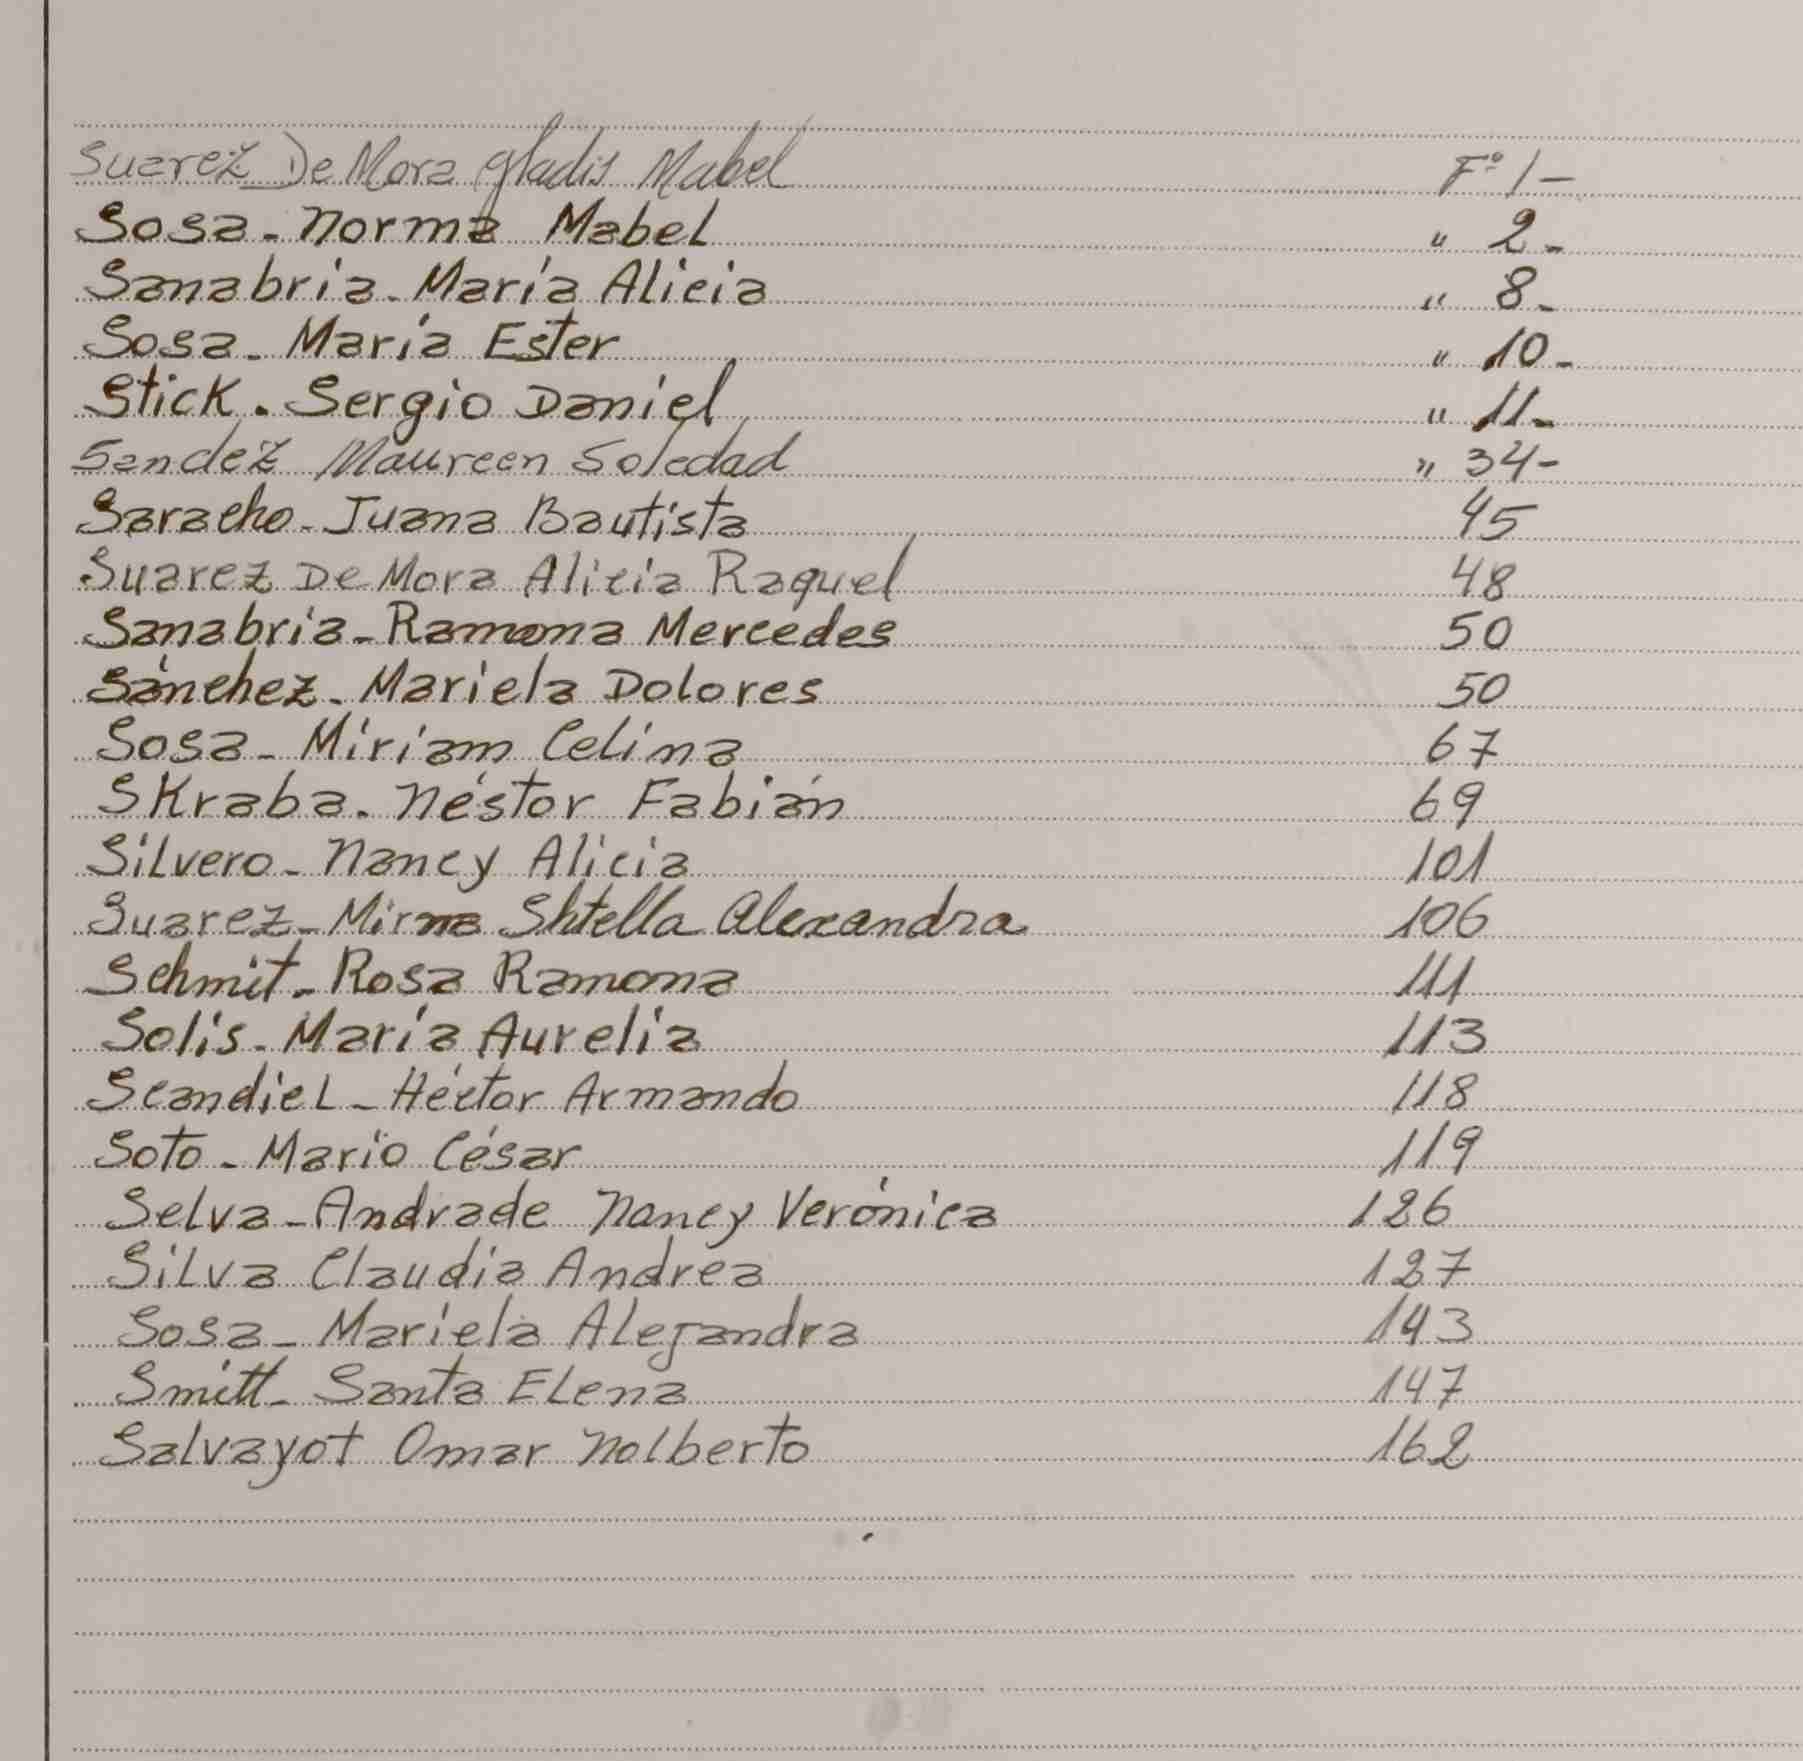 Suarez De Mora Gladis Mabel Fº 1-
Sosa - Norma Mabel " 2-
Sanabria - María Alicia " 8-
Sosa - María Ester " 10-
Stick - Sergio Daniel " 11-
Sandez Maureen Soledad " 34-
Saracho - Juana Bautista 45
Suarez De Mora Alicia Raquel 48
Sanabria - Ramona Mercedes 50
Sánchez - Mariela Dolores 50
Sosa - Miriam Celina 67
Skraba - Néstor Fabián 69
Silvero - Nancy Alicia 101
Suarez - Mirna Shtella Alexandra 106
Schmit - Rosa Ramona 111
Solis - María Aurelia 113
Scandiel - Héctor Armando 118
Soto - Mario César 119
Selva - Andrade Nancy Verónica 126
Silva Claudia Andrea 127
Sosa - Mariela Alejandra 143
Smitt - Santa Elena 147
Salvayot Omar Nolberto 162